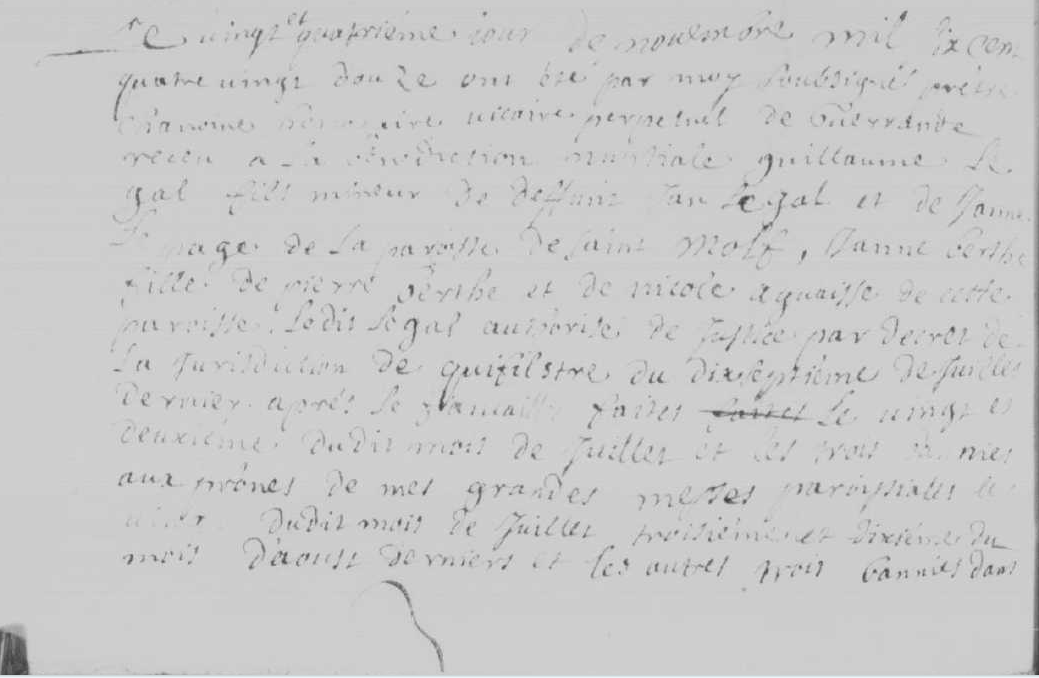 Le vingt et quatriéme iour de nouembre mil six cent
quatre vingt douze ont été par moy soubsigné prétre
chanoine uicaire perpetuel de Guerrande
receu a la bénédiction nuptiale guillaume Le
gal fils mineur de deffunt Jan Legal et de Janne
Lepage de la paroisse de saint Molf, Janne berthe
fille de pierre bérthe et de nicole aguaisse de cette
paroisse. Ledit Legal authorisé de Justice par decret de
la Jurisdiction de quifilstre du dixseptiéme de Juillet
dernier aprés le fiancailles faites le uingt et
deuxiéme dudit mois de Juillet et les trois
aux prônes de mes grandes messes paroissiales le
dudit mois de Juillet troisiéme et dixiéme du
mois d'aoust derniers et les autres trois bannies dans